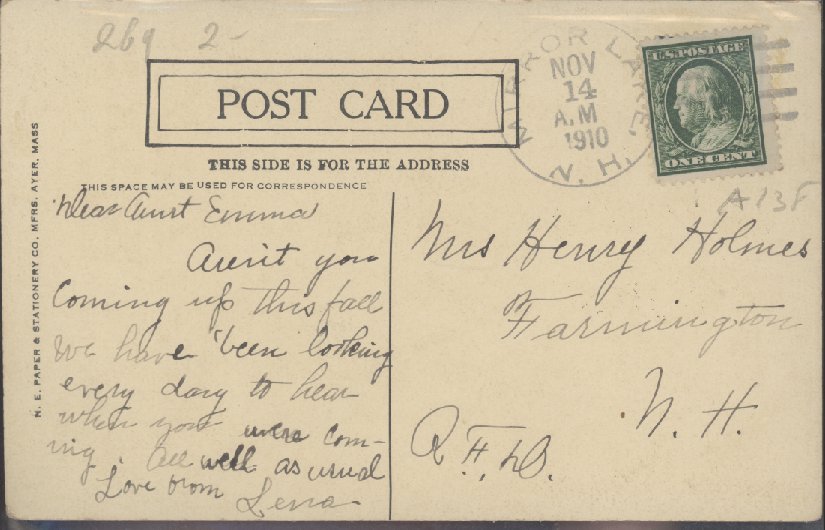 269 2-
POST CARD
THIS SIDE IS FOR THE ADDRESS
THIS SPACE MAY BE USED FOR CORRESPONDENCE
N. E. PAPER & STATIONERY CO. MFRS. AYER, MASS
MIRROR LAKE,
NOV
14
A.M
1910
N. H.
U.S. POSTAGE
ONE CENT
A13F
Dear Aunt Emma
Aren't you
coming up this fall
We have been looking
every day to hear
when you were com-
ing. All well as usual
Love from Lena
Mrs Henry Holmes
Farmington
N. H.
R.F.D.